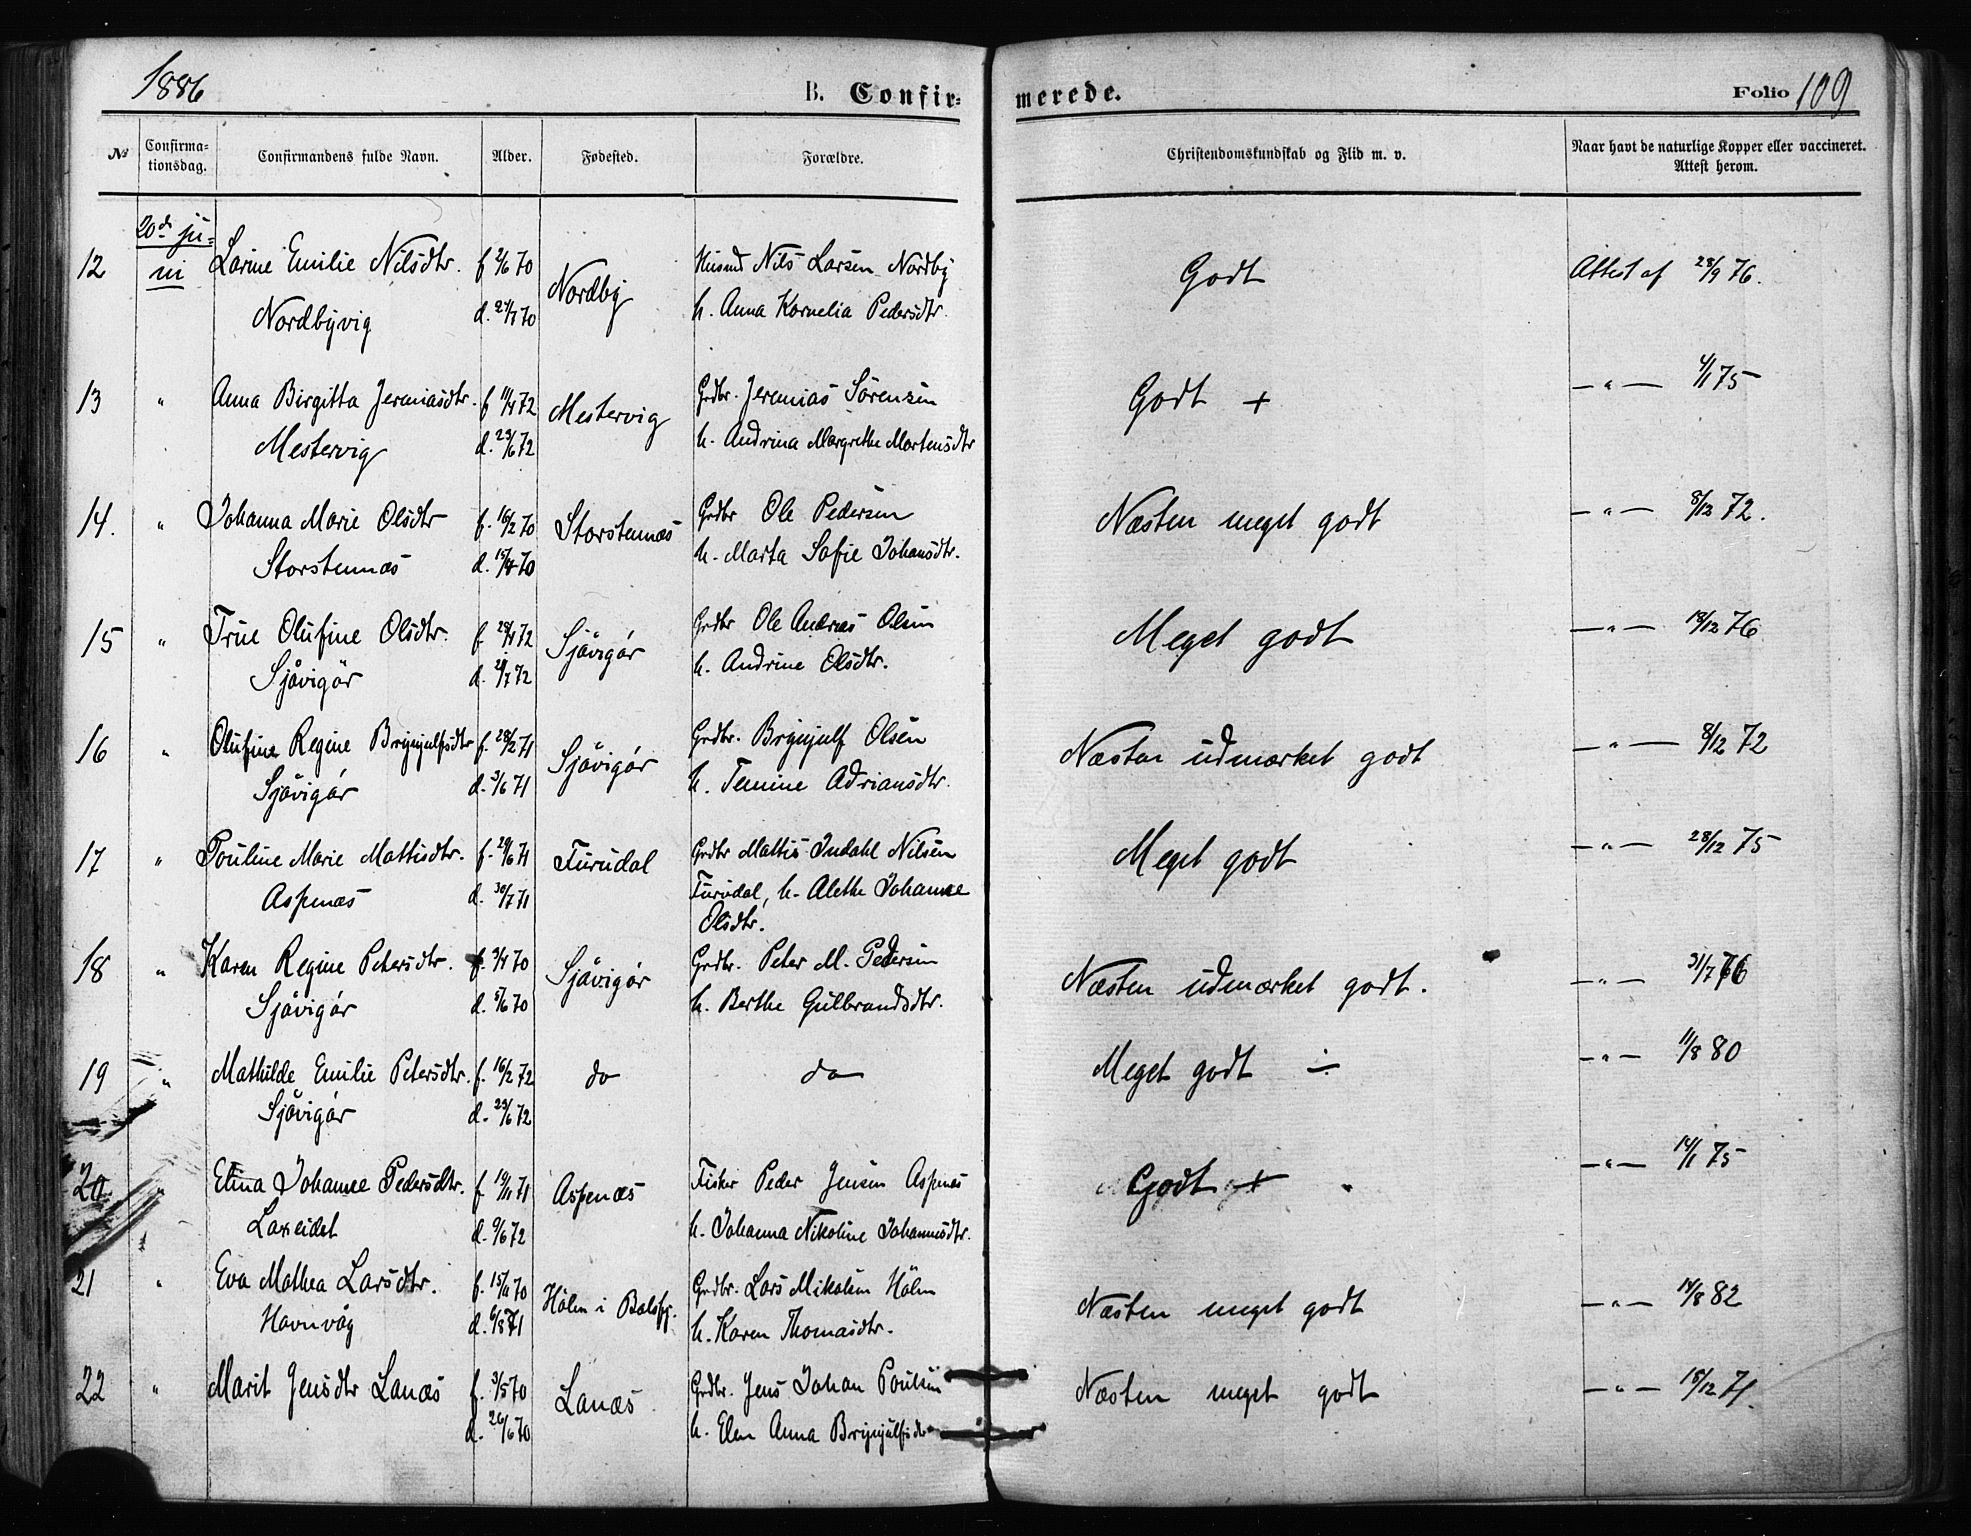 1886 B. Confir= merede. Folio 109
№ Confirma= tionsdag. Confirmandens fulde Navn. Alder. Fødested. Forældre. Christendomskundskab og Flid m. v. Naar havt de naturlige Kopper eller vaccineret. Attest herom.
20de ju=
12 ni Larine Emilie Nilsdtr. f 2/6 70 Nordby Husmd Nils Larsen Nordby Godt Attest af 28/9 76.
Nordbyvig d. 24/7 70 h. Anna Kornelia Pedersdtr.
13 " Anna Birgitta Jeremiasdtr. f 11/4 72 Mestervig Grdbr. Jeremias Sørensen Godt + — " — 4/1 75
Mestervig d. 23/6 72 h. Andrina Margrethe Mortensdtr
14. " Johanna Marie Olsdtr f. 16/2 70 Storstennæs Grdbr Ole Pedersen Næsten meget godt — " — 8/12 72.
Storstennæs d. 15/4 70 h. Marta Sofie Johansdtr.
15 " Trine Olufine Olsdtr. f 28/4 72 Sjåvigør Grdbr Ole Andreas Olsen Meget godt — " — 19/12 76
Sjåvigør d. 21/7 72 h. Andrine Olsdtr.
16 " Olufine Regine Brynjulfsdtr f. 28/2 71 Sjåvigør Grdbr. Brynjulf Olsen Næsten udmærket godt — " — 8/12 72
Sjåvigør d. 3/6 71 h. Temine Adriansdtr.
17 " Pouline Marie Mattisdtr. f. 29/6 71 Furudal Grdbr Mattis Indahl Nilsen Meget godt — " — 28/12 75
Aspenæs d. 30/7 71 Furudal, h. Alethe Johanne
Olsdtr.
18 " Karen Regine Petersdtr. f. 3/4 70 Sjåvigør Grdbr. Peter M. Pedersen Næsten udmærket godt. — " — 31/7 76
Sjåvigør d. 5/6 70 h. Berthe Gulbrandsdtr.
19 " Mathilde Emilie Petersdtr. f. 16/2 72 do do Meget godt ÷ — " — 11/8 80
Sjåvigør d. 23/6 72
20 " Elina Johanne Pedersdtr. f 19/11 71 Aspenæs Fisker Peder Jensen Aspenæs Godt + — " — 14/1 75
Laxeidet d. 9/6 72 h. Johanna Nikoline Johannesdtr.
21 " Eva Mathea Larsdtr. f. 15/11 70 Hølm i Balsfj. Grdbr. Lars Mikalsen Hølm Næsten meget godt — " — 14/8 82
Havnvåg d. 6/8 71 h. Karen Thomasdtr.
22 " Marit Jensdtr Lanæs f. 3/5 70 Lanæs Grdbr. Jens Johan Poulsen Næsten meget godt — " — 15/12 71.
d. 26/6 70 h. Elen Anna Brynjulfsdtr